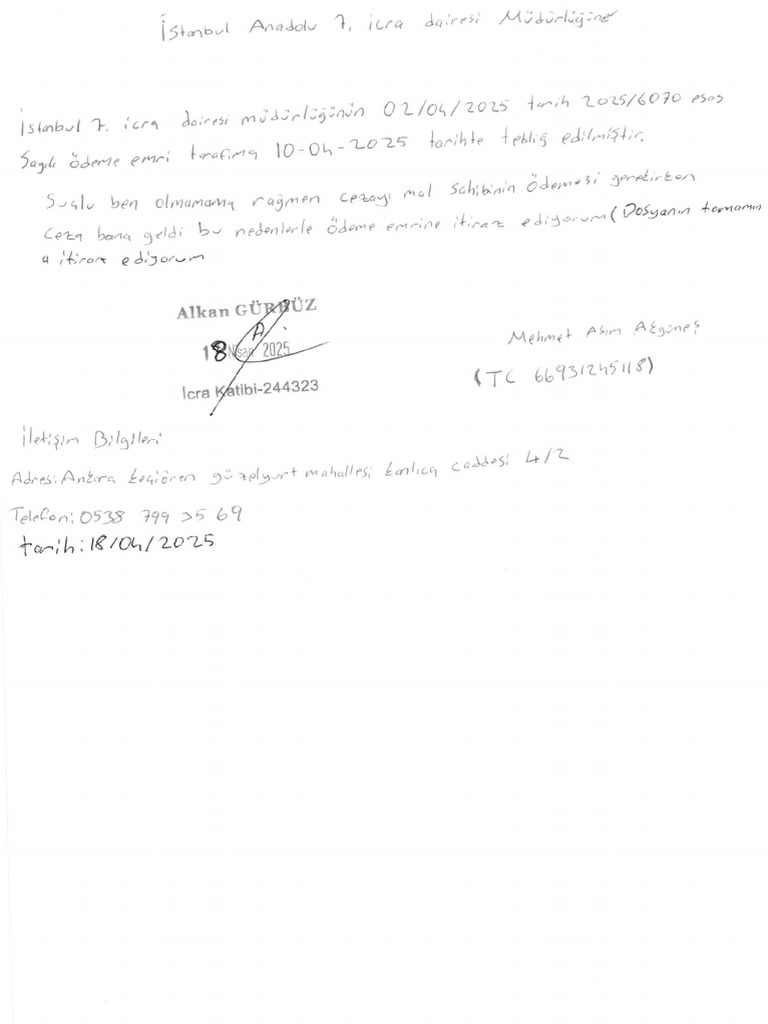 İstanbul Anadolu 7. icra dairesi Müdürlüğüne
İstanbul 7. icra dairesi müdürlüğünün 02/04/2025 tarih 2025/6070 esas
Sayılı ödeme emri tarafıma 10-04-2025 tarihte tebliğ edilmiştir.
Suçlu ben olmamama rağmen cezayı mal sahibinin ödemesi gerekirken
ceza bana geldi bu nedenlerle ödeme emrine itiraz ediyorum (Dosyanın tamamın
a itiraz ediyorum
Alkan GÜRBÜZ
18 Nisan 2025
İcra Katibi-244323
Mehmet Asım Akgüneş
(TC 66931245118)
İletişim Bilgileri
Adres: Ankara keçiören güzelyurt mahallesi kanlıca caddesi 4/2
Telefon: 0538 799 35 69
tarih: 18/04/2025